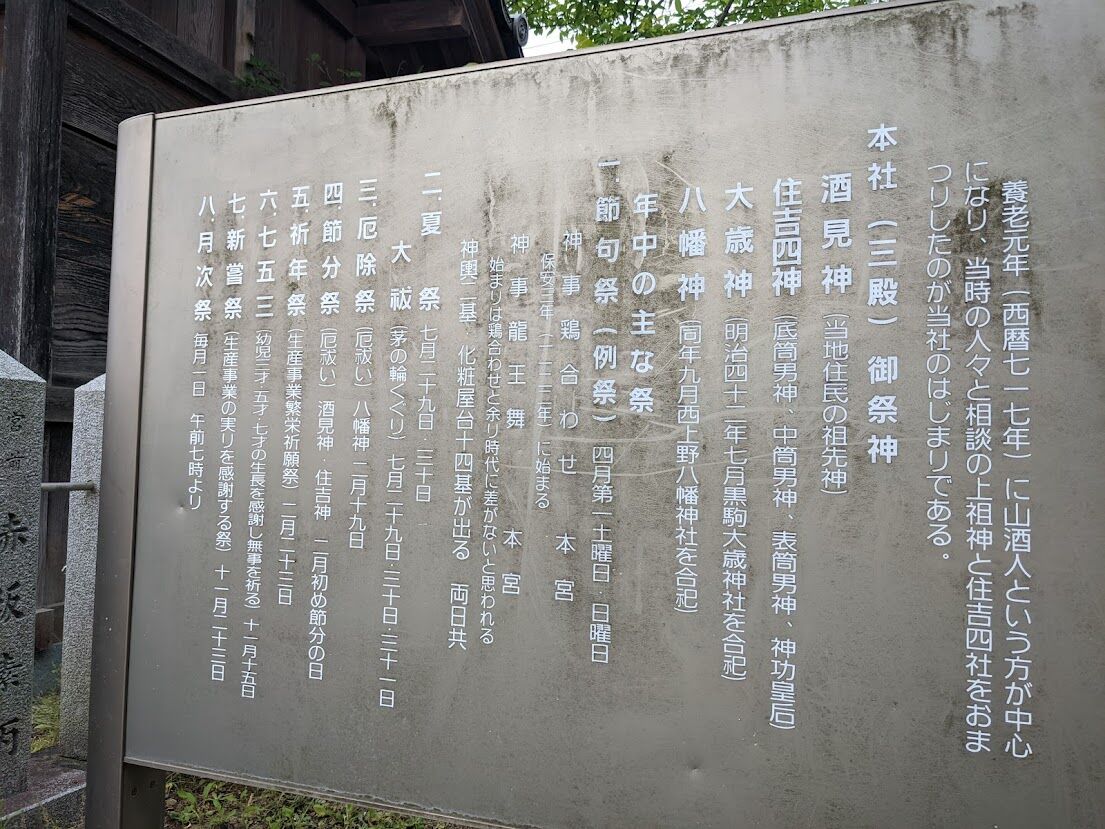 養老元年（西暦七一七年）に山酒人という方が中心
になり、当時の人々と相談の上祖神と住吉四社をおま
つりしたのが当社のはじまりである。
本社（三殿）御祭神
酒見神（当地住民の祖先神）
住吉四神（底筒男神、中筒男神、表筒男神、神功皇后）
大歳神（明治四十二年七月黒駒大歳神社を合祀）
八幡神（同年九月西上野八幡神社を合祀）
年中の主な祭
一.節句祭（例祭）四月第一土曜日・日曜日
神事鶏合わせ 本宮
保安三年（一一二二年）に始まる
神事龍王舞 本宮
始まりは鶏合わせと余り時代に差がないと思われる
神輿二基 化粧屋台十四基が出る 両日共
二.夏祭 七月二十九日・三十日
大祓（茅の輪くぐり）七月二十九日・三十日・三十一日
三.厄除祭（厄祓い）八幡神 二月十九日
四.節分祭（厄祓い）酒見神 住吉神 二月初め節分の日
五.祈年祭（生産事業繁栄祈願祭）二月二十三日
六.七五三（幼児三才・五才・七才の生長を感謝し無事を祈る）十一月十五日
七.新嘗祭（生産事業の実りを感謝する祭）十一月二十三日
八.月次祭 毎月一日 午前七時より
赤坂